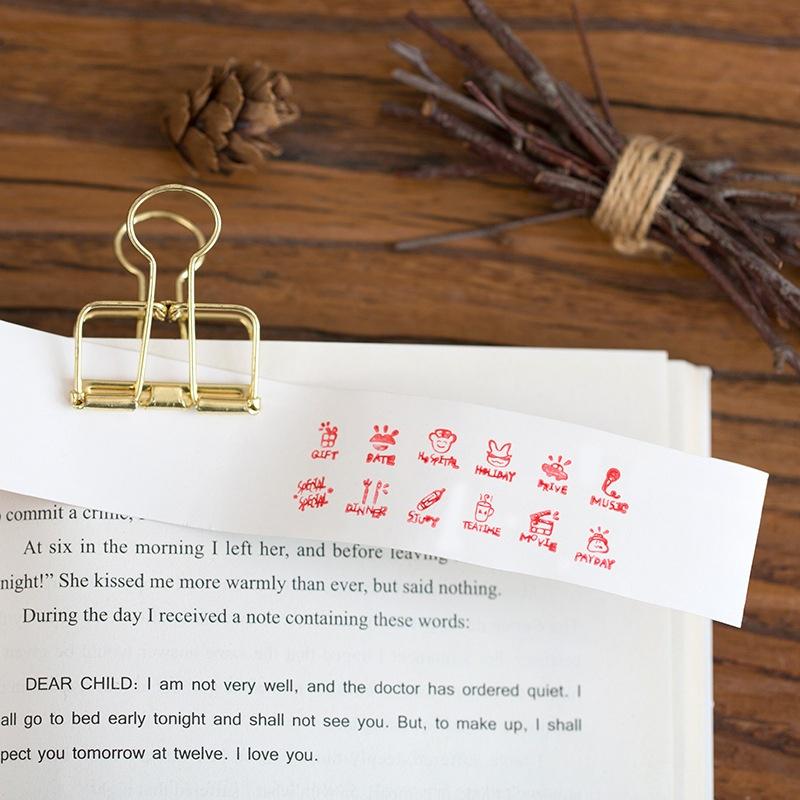 GIFT DATE HOSPITAL HOLIDAY DRIVE MUSIC
SPECIAL
SPECIAL
DINNER STUDY TEATIME MOVIE PAYDAY
commit a crime,
At six in the morning I left her, and before leaving
night!” She kissed me more warmly than ever, but said nothing.
During the day I received a note containing these words:
DEAR CHILD: I am not very well, and the doctor has ordered quiet. I
all go to bed early tonight and shall not see you. But, to make up, I shall
pect you tomorrow at twelve. I love you.